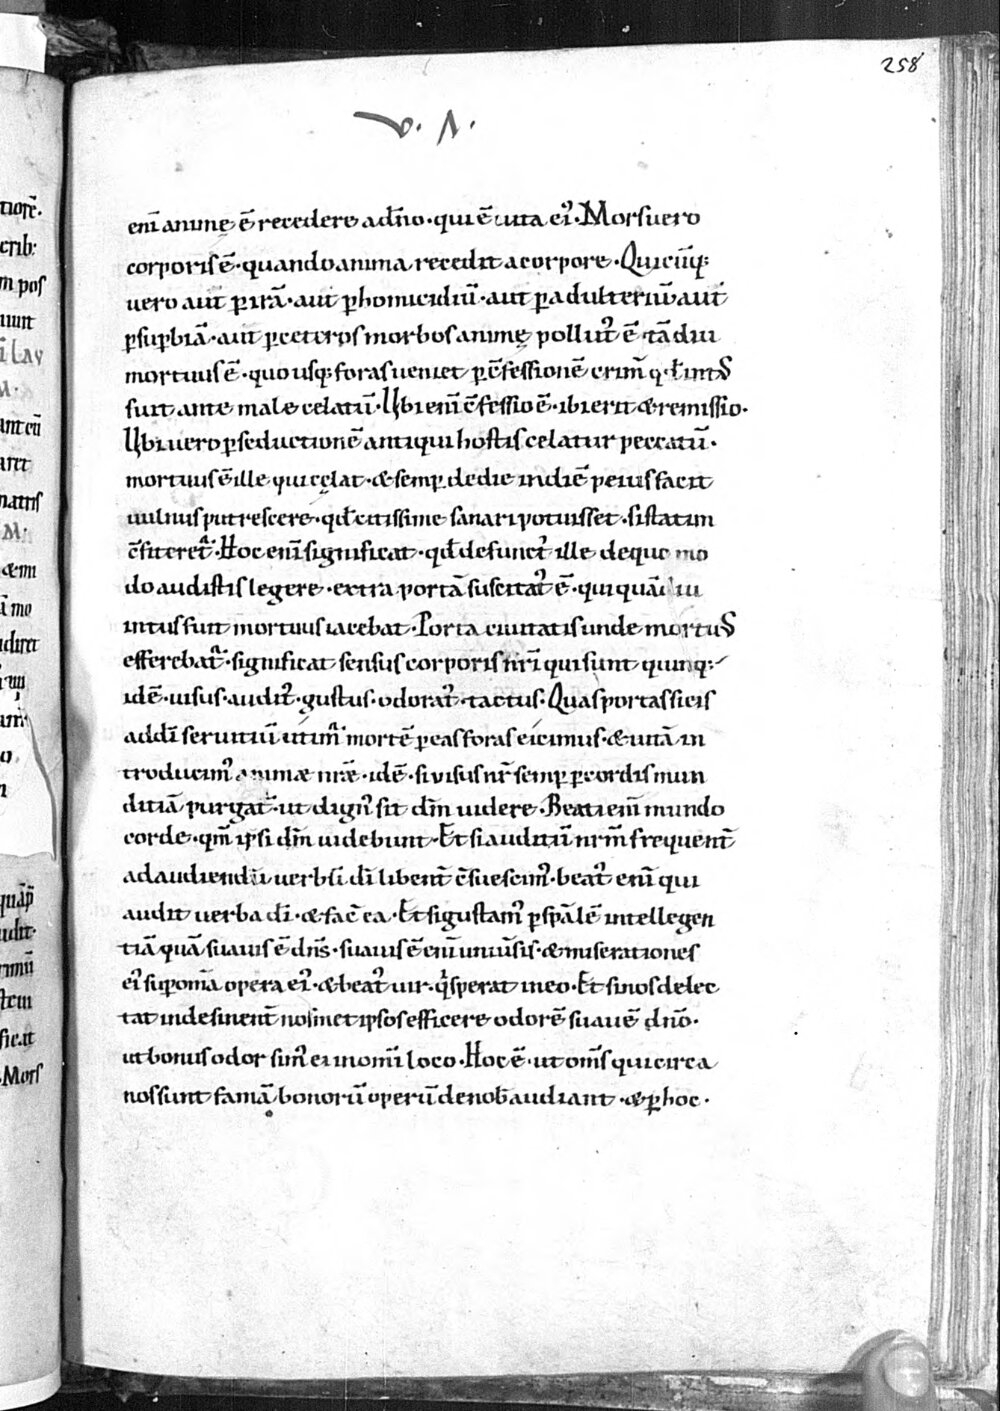 258
v. Λ.
enī animę ē recedere a dn̄o · qui ē uita ei᷒. Mors uero
corporis ē · quando anima recedit a corpore · Quicūq;
uero aut ꝑ irā · aut ꝑ homicidiū · aut ꝑ adulteriū aut
ꝑ suꝑbiā · aut ꝑ ceteros morbos animę pollut᷒ ē · tā diu
mortuus ē · quo usq; foras ueniet ꝑ c̄fessionē crim̄ qđ int᷒
fuit ante male celatū · Ubi enī c̄fessio ē · ibi erit & remissio ·
Ubi uero ꝑ seductionē antiqui hostis celatur peccatū ·
mortuus ē ille qui cęlat · & semꝑ de die in diē peius facit
uulnus putrescere · qđ citissime sanari potuisset · si statim
c̄fiteret᷑ · Hoc enī significat · qđ defunct᷒ ille de quo mo
do audistis legere · extra portā suscitat᷒ ē · qui quādiu
intus fuit mortuus iacebat · Porta ciuitatis unde mortu᷒
efferebat᷑ · significat sensus corporis nr̄i qui sunt quinq; ·
idē · uisus · audit᷒ · gustus · odorat᷒ · tactus · Quas portas si eis
ad dī seruitiū utim᷑ · mortē ꝑ eas foras eicimus · & uitā in
troducim᷒ animæ nr̄æ · idē · si uisus nr̄ semꝑ ꝑ cordis mun
ditiā purgat᷑ · ut dign᷒ sit dm̄ uidere · Beati enī mundo
corde · qm̄ ipsi dm̄ uidebunt · Et si auditū nr̄m frequent̄
ad audiendū uerbū dī libent̄ c̄suescim᷒ · beat᷒ enī qui
audit uerba dī · & fac̄ ea · Et si gustam᷒ ꝑ spālē intellegen
tiā quā suauis ē dn̄s · suauis ē enī uniuīsis · & miserationes
ei᷒ suꝑ om̄a opera ei᷒ · & beat᷒ uir · q̄ sperat in eo · Et si nos delec
tat indesinent̄ nosmet ipsos efficere odorē suauē dn̄o ·
ut bonus odor sim᷒ ei in om̄i loco · Hoc ē · ut om̄s qui circa
nos sunt famā bonorū operū de nob̄ audiant · & ꝑ hoc ·